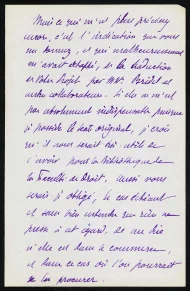 Mais ce qui m'est plus précieux
encore, c'est l'indication que vous
me donnez, et qui malheureusement
m'avait échappé, de la traduction
de votre Projet par MM. Bridel et
autre collaborateur. Si elle ne m'est
pas absolument indispensable puisque
je possède le texte original, je crois
qu'il nous serait très utile de
l'avoir pour la bibliothèque de
la Faculté de Droit. Aussi vous
serais-je obligé, le cas échéant
et sous bien entendu que rien ne
presse à cet égard, de me dire
si elle est dans le commerce
et dans ce cas où l'on pourrait
se la procurer.